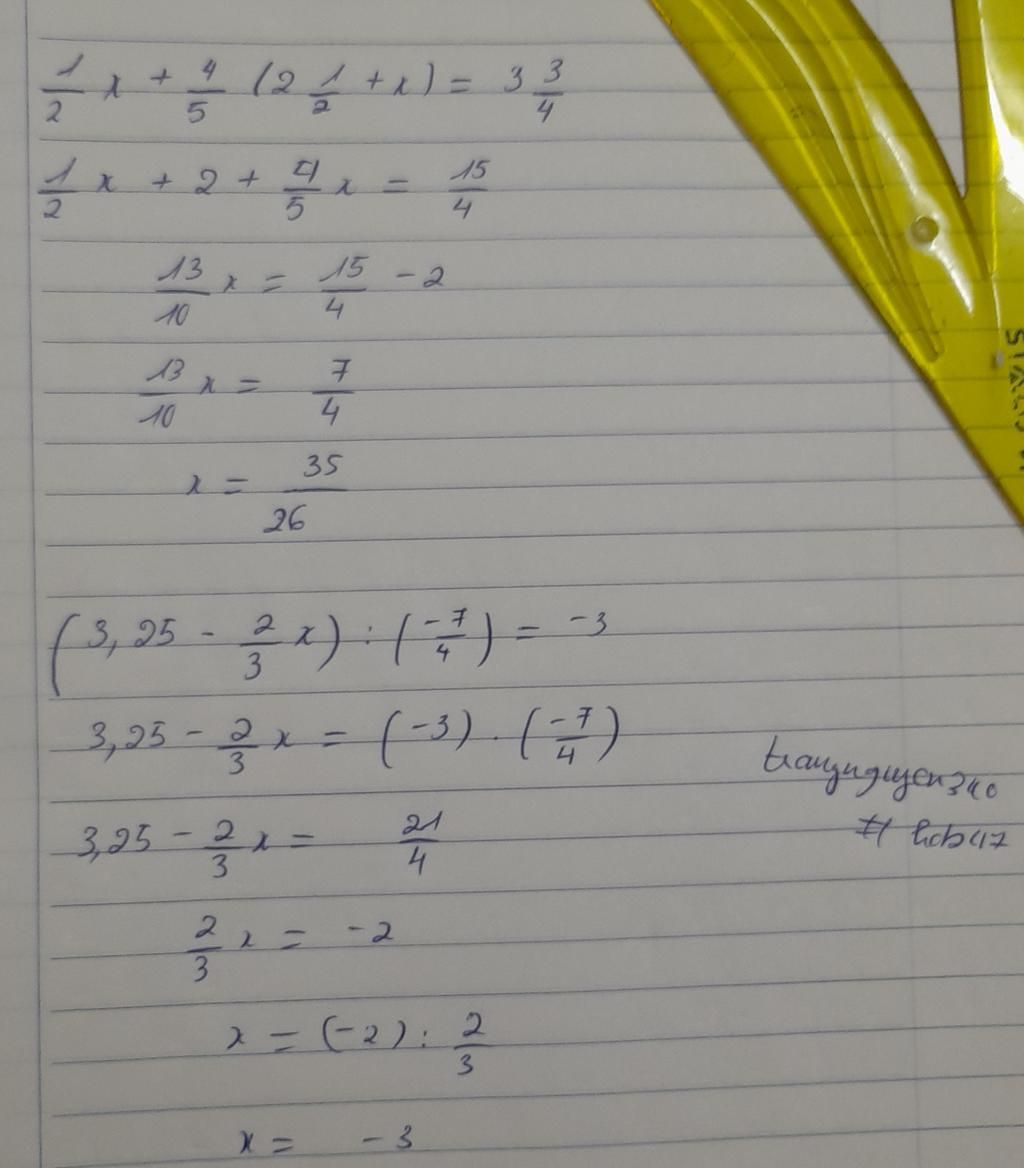 1/2 x + 4/5 (2 1/2 + x) = 3 3/4
1/2 x + 2 + 4/5 x = 15/4
13/10 x = 15/4 - 2
13/10 x = 7/4
x = 35/26
(3,25 - 2/3 x) : (-7/4) = -3
3,25 - 2/3 x = (-3) . (-7/4)
3,25 - 2/3 x = 21/4
2/3 x = -2
x = (-2) : 2/3
x = -3